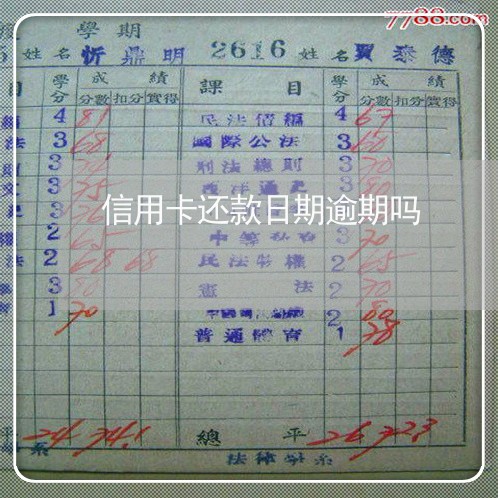 7788.com
學期
姓名 忻鼎明 2616 姓名 賈泰德
目 學分 成績 課目 學分 成績
分數 扣分 實得 分數 扣分 實得
4 81 民法債編 4 67
法 3 68 國際公法 3 60
3 刑法總則 3 70
3 75 西洋通史 3 80
信用卡还款日期逾期吗
2 65 3 70
法 2 68 68 民法物權 2 65
3 80 憲法 2 70
1 70 2 80
普通體育 1 78
平 24 74.1 總平 26 72.3
系 法律學系